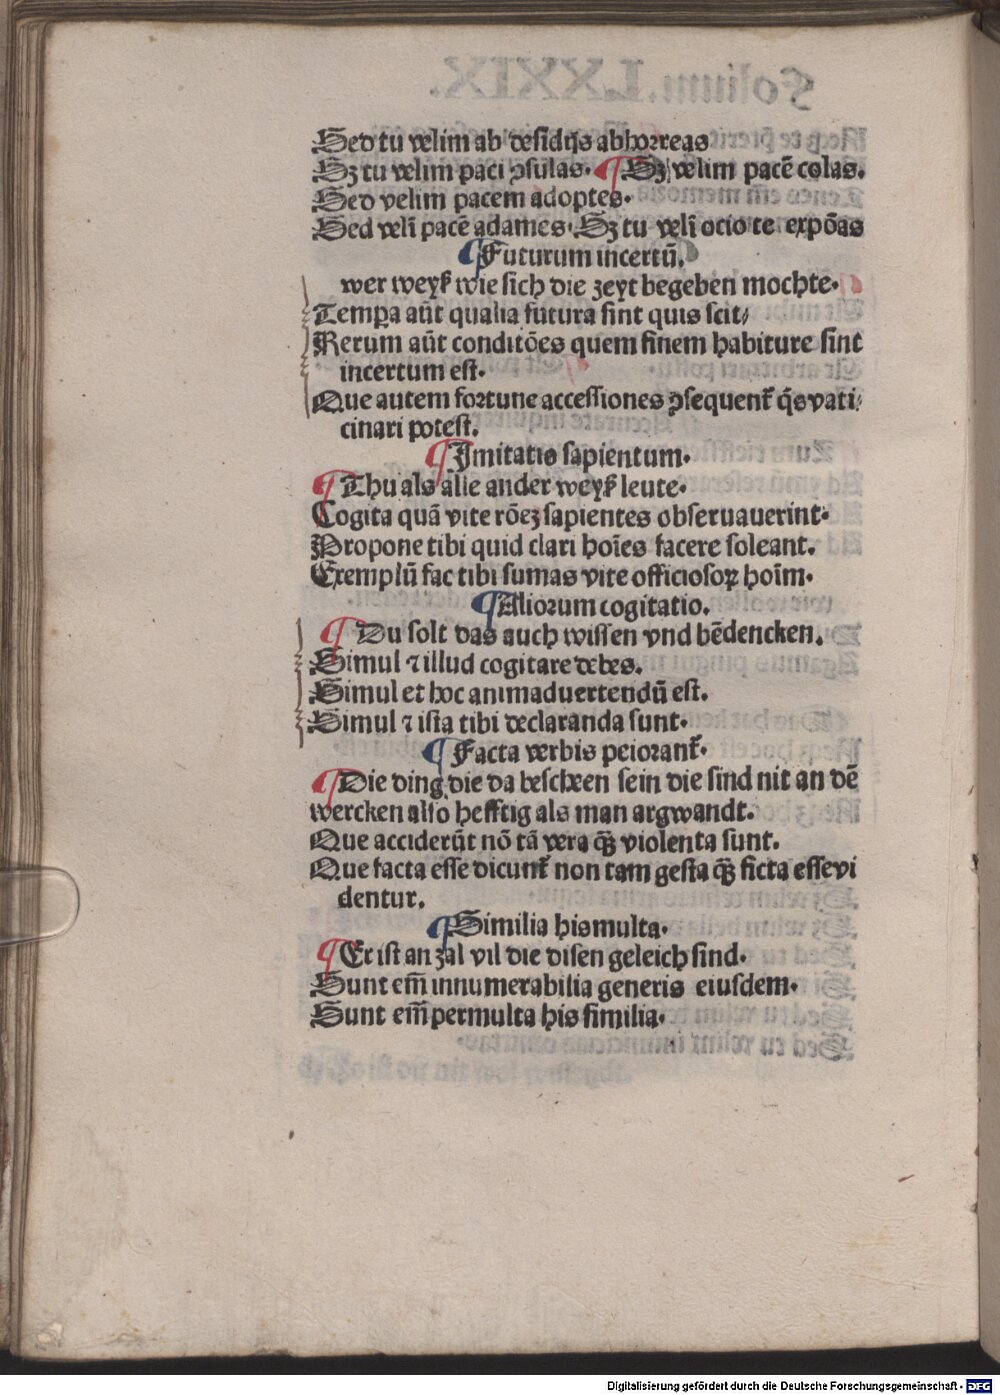 Sed tu velim ab desidijs abhorreas
Sꝫ tu velim paci ꝯsulas. ¶ Sꝫ velim pacē colas.
Sed velim pacem adoptes.
Sed veli᷑ pacē adames. Sꝫ tu veli᷑ ocio te expōas
¶ Futurum incertū.
wer weyß wie sich die zeyt begeben mochte.
Tempa aūt qualia futura sint quis scit/
Rerum aūt conditōes quem finem habiture sint
incertum est.
Que autem fortune accessiones ꝯsequent᷑ q̄s vati⸗
cinari potest.
¶ Imitatio sapientum.
¶ Thu als alle ander weyß leute.
Cogita quā vite rōeꝫ sapientes obseruauerint.
Propone tibi quid clari hoīes facere soleant.
Exemplū fac tibi sumas vite officiosoꝝ hoīm.
¶ Aliorum cogitatio.
¶ Du solt das auch wissen vnd bedencken.
Simul ⁊ illud cogitare debes.
Simul et hoc animaduertendū est.
Simul ⁊ ista tibi declaranda sunt.
¶ Facta verbis peiorant᷑.
¶ Die ding die da bescheen sein die sind nit an dē
wercken also hefftig als man argwandt.
Que acciderūt nō tā vera qꝫ̄ violenta sunt.
Que facta esse dicunt᷑ non tam gesta qꝫ̄ ficta esse vi
dentur.
¶ Similia his multa.
¶ Er ist an zal vil die disen geleich sind.
Sunt em̄ innumerabilia generis eiusdem.
Sunt em̄ permulta his similia.
Digitalisierung gefördert durch die Deutsche Forschungsgemeinschaft - DFG